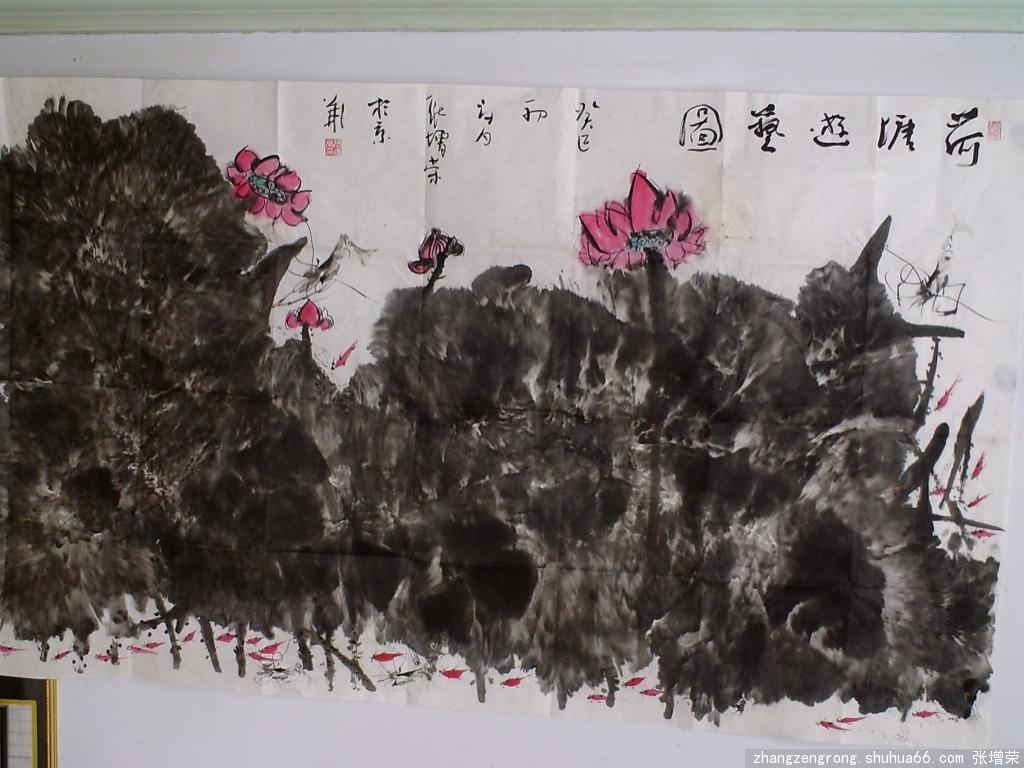 荷塘遊藝圖
癸巳
初
张增荣
於京
zhangzengrong.shuhua66.com 张增荣